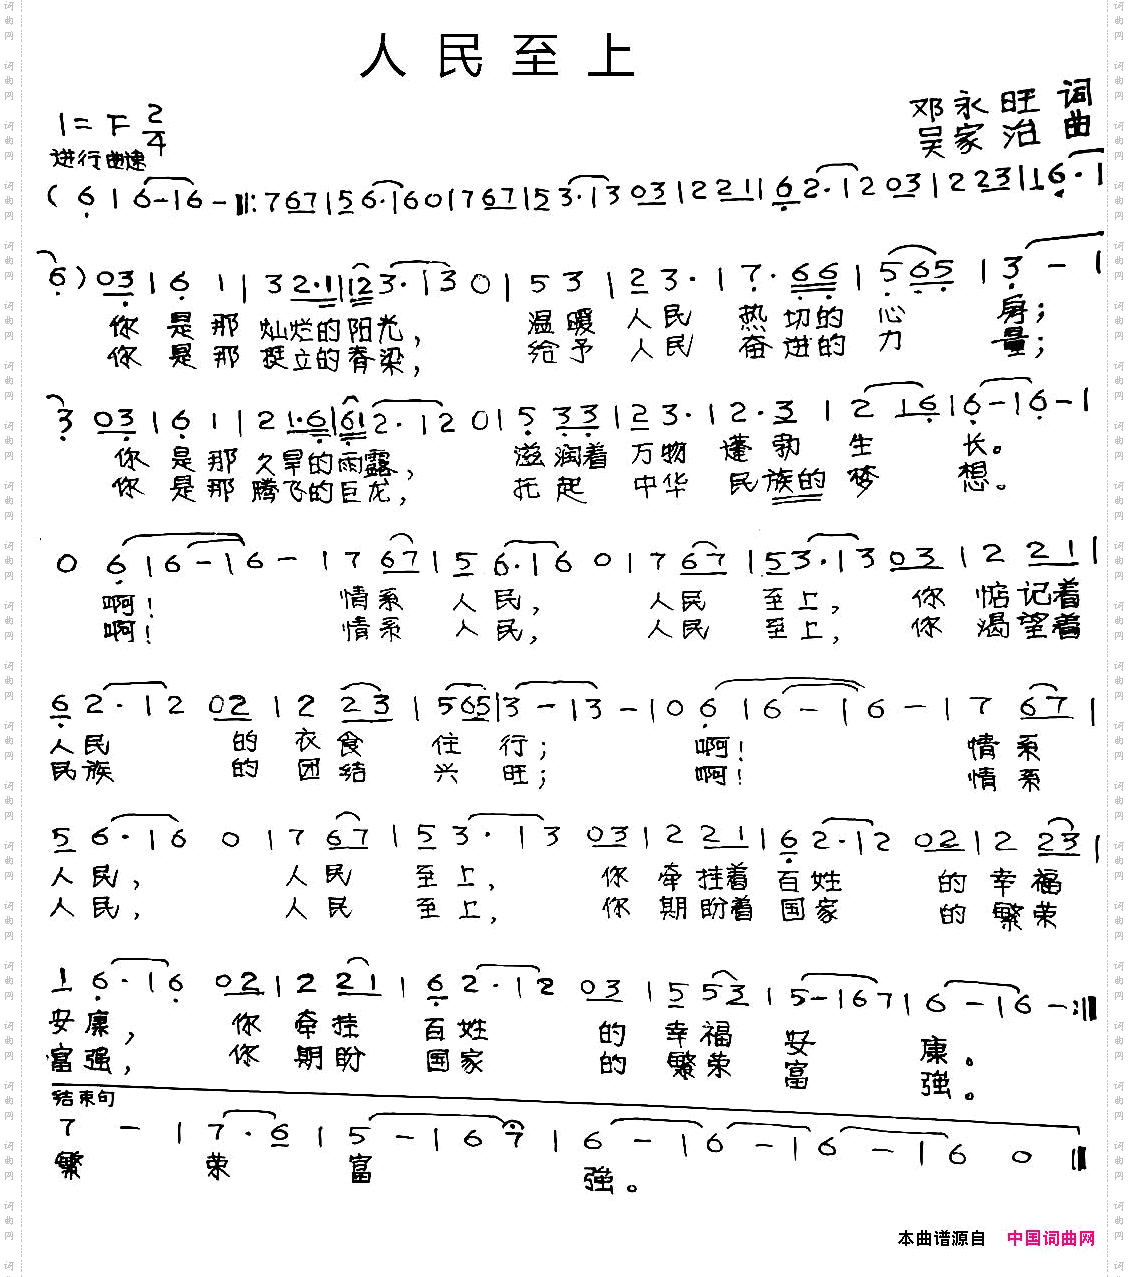 人民至上
1=F 2/4
邓永旺 词
吴家治 曲
进行曲速
( 6 | 6 - | 6 - ‖: 7 67 | 5 6· | 6 0 | 7 67 | 5 3· | 3 03 | 2 21 | 6 2· | 2 03 | 2 23 | 1 6· |
6 ) 03 | 6 1 | 3 2·1 | 12 3· | 3 0 | 5 3 | 2 3· | 7· 66 | 5 65 | 3 - |
你 是那 灿烂的阳光, 温暖 人民 热切的 心 房;
你 是那 挺立的脊梁, 给予 人民 奋进的 力 量;
3 03 | 6 1 | 2 1·6 | 61 2· | 2 0 | 5 33 | 2 3· | 2· 3 | 2 16 | 6 - | 6 - |
你 是那 久旱的雨露, 滋润着 万物 蓬勃 生 长。
你 是那 腾飞的巨龙, 托起 中华 民族的 梦 想。
0 6 | 6 - | 6 - | 7 67 | 5 6· | 6 0 | 7 67 | 5 3· | 3 03 | 2 21 |
啊! 情系 人民, 人民 至上, 你 惦记着
啊! 情系 人民, 人民 至上, 你 渴望着
6 2· | 2 02 | 2 23 | 5 65 | 3 - | 3 - | 0 6 | 6 - | 6 - | 7 67 |
人民 的 衣食 住 行; 啊! 情系
民族 的 团结 兴 旺; 啊! 情系
5 6· | 6 0 | 7 67 | 5 3· | 3 03 | 2 21 | 6 2· | 2 02 | 2 23 |
人民, 人民 至上, 你 牵挂着 百姓 的 幸福
人民, 人民 至上, 你 期盼着 国家 的 繁荣
1 6· | 6 02 | 2 21 | 6 2· | 2 03 | 5 53 | 5 - | 67 | 6 - | 6 - :‖
安康, 你 牵挂 百姓 的 幸福 安 康。
富强, 你 期盼 国家 的 繁荣 富 强。
结束句
7 - | 7· 6 | 5 - | 6 7 | 6 - | 6 - | 6 - | 6 0 ‖
繁 荣 富 强。
本曲谱源自 中国词曲网